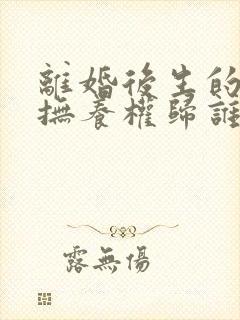 離婚後生的
撫養權歸誰
露無傷